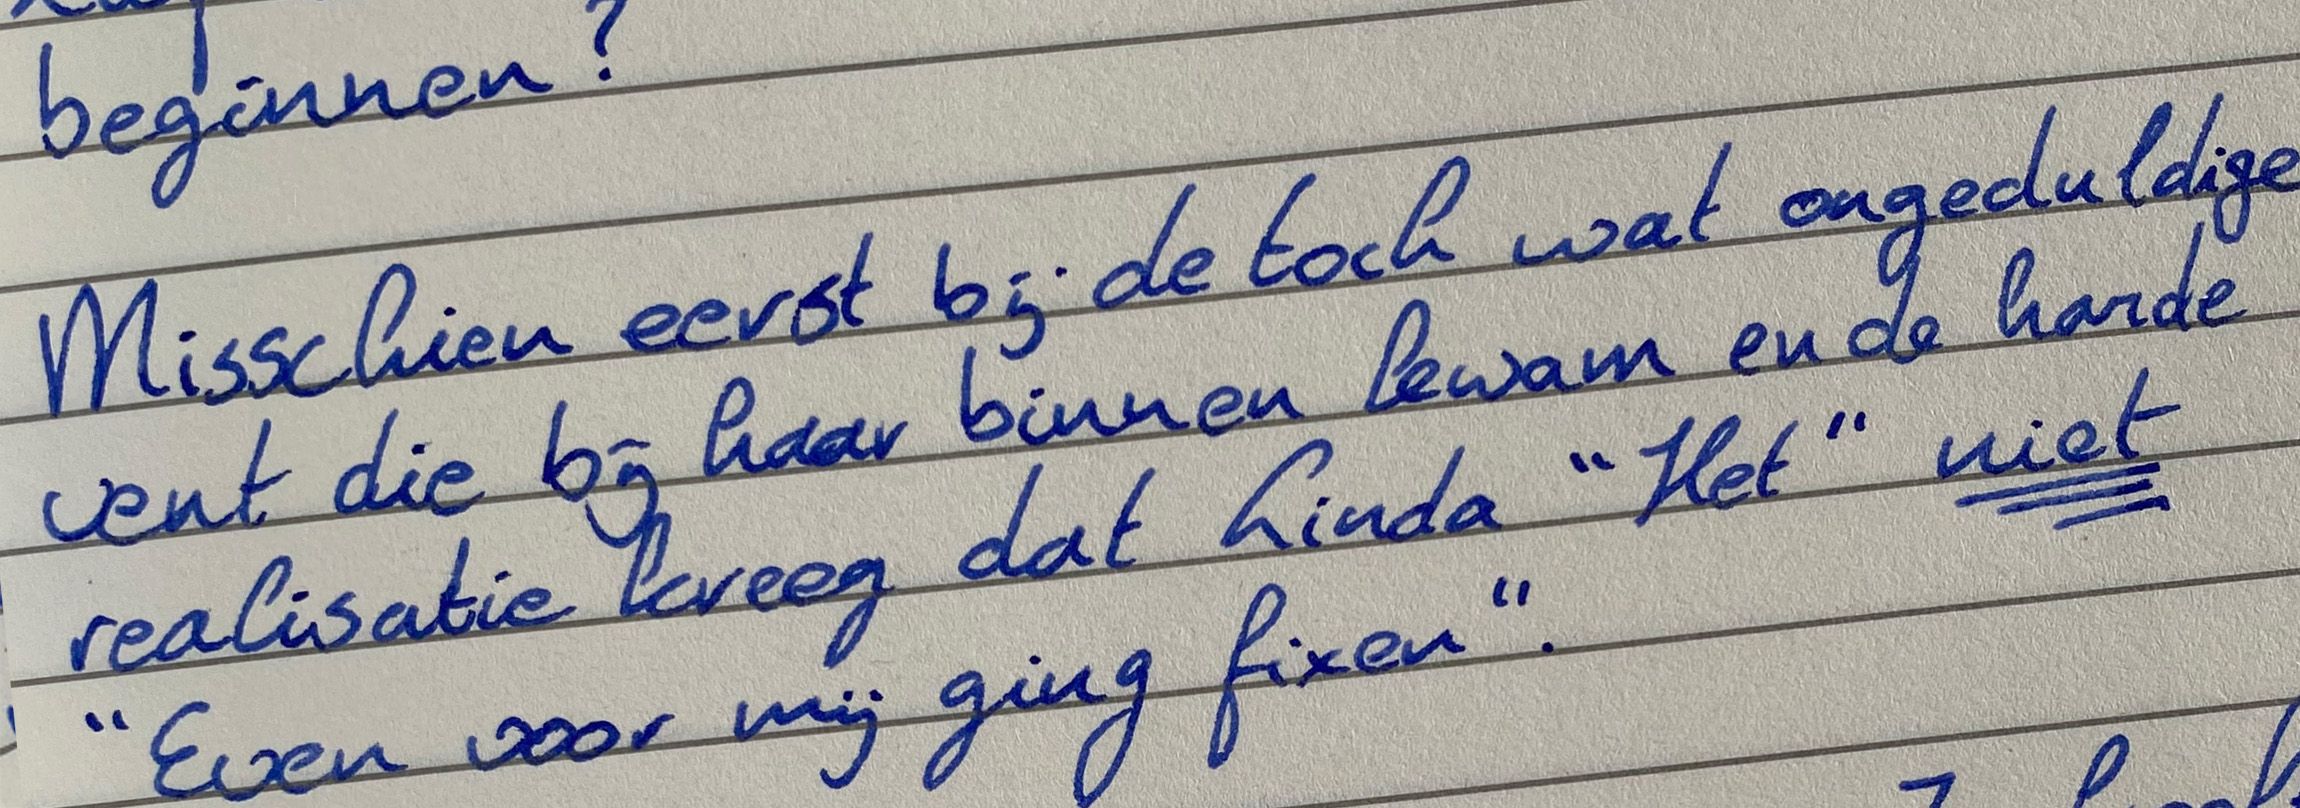 beginnen?
Misschien eerst bij de toch wat ongeduldige
vent die bij haar binnen kwam en de harde
realisatie kreeg dat Linda "Het" niet
"Even voor mij ging fixen".